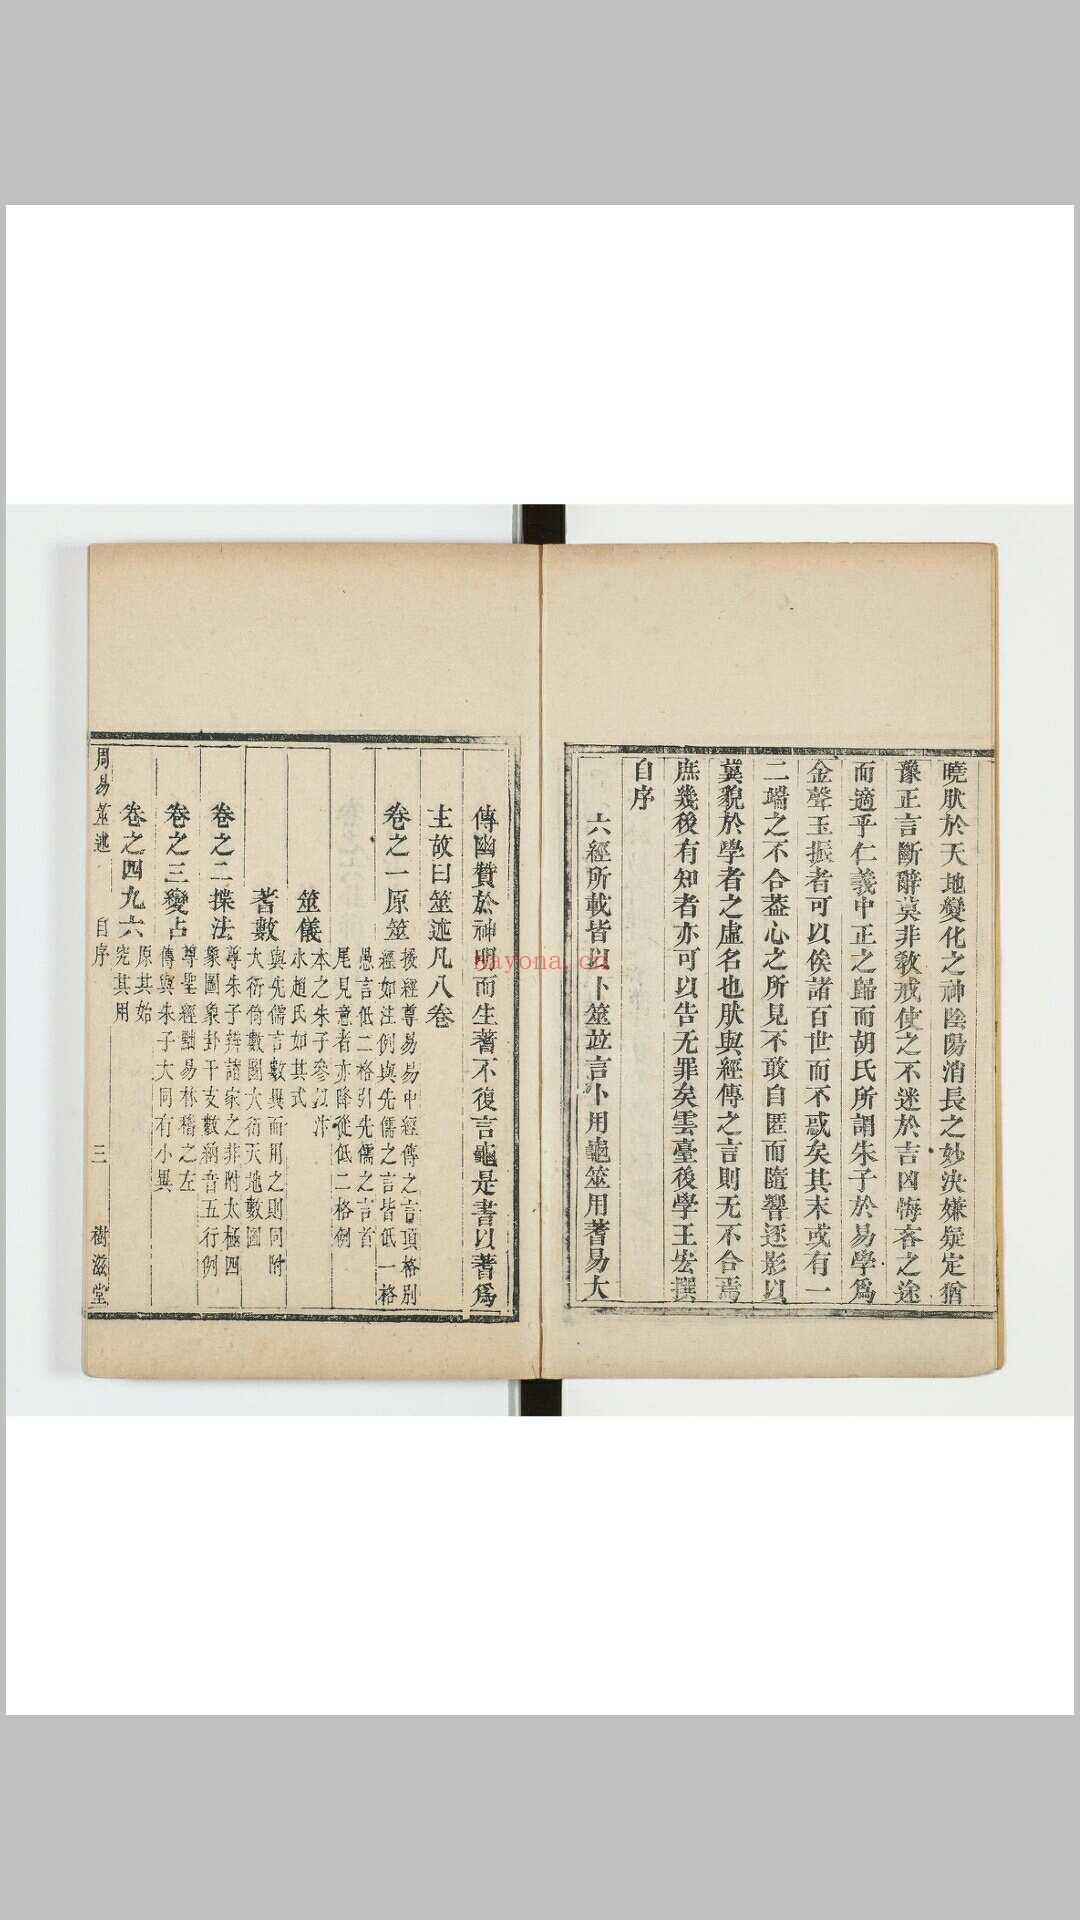 曉肰於天地變化之神陰陽消長之妙決嫌疑定猶
豫正言斷辭莫非敎戒使之不迷於吉凶悔吝之途
而適乎仁義中正之歸而胡氏所謂朱子於易學爲
金聲玉振者可以俟諸百世而不惑矣其末或有一
二端之不合葢心之所見不敢自匿而隨響逐影以
冀貌於學者之虛名也肰與經傳之言則无不合焉
庶幾後有知者亦可以告无罪矣雲臺後學王宏撰
自序
六經所載皆以卜筮竝言卜用龜筮用蓍易大
傳幽贊於神明而生蓍不復言龜是書以蓍爲
主故曰筮述凡八卷
卷之一原筮
援經尊易易中經傳之言頂格別
經如注例與先儒之言皆低一格
愚言低二格引先儒之言首
尾見意者亦降從低二格例
筮儀
本之朱子參以汴
水趙氏如其式
蓍數
與先儒言數異而用之則同附
大衍倚數圖大衍天地數圖
卷之二揲法
尊朱子辨諸家之非附太極四
象圖象卦干支數納音五行例
卷之三變占
尊聖經黜易林稽之左
傳與朱子大同有小異
卷之四九六
原其始
究其用
周易筮述 自序 三 樹滋堂
nayona.cn